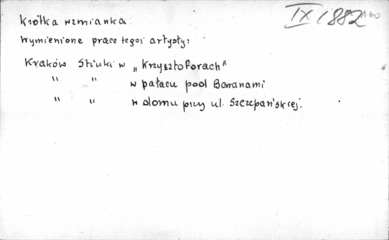 IX 1882
Krótka wzmianka.
Wymienione prace tegoż artysty:
Kraków Stiuki w „Krzysztoforach"
" " w pałacu pod Baranami
" " w domu przy ul. Szczepańskiej.